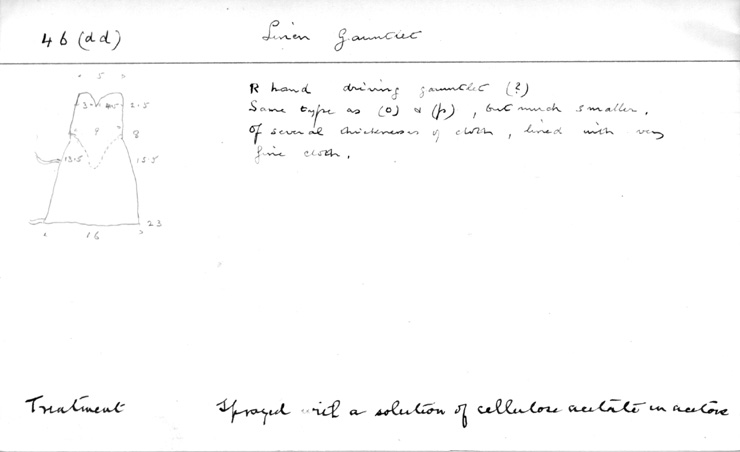 46 (dd) Linen Gauntlet
R hand driving gauntlet (?)
Same type as (o) & (p), but much smaller.
Of several thicknesses of cloth, lined with very
fine cloth.
5
3 4.5 2.5
9 8
13.5 15.5
23
16
Treatment Sprayed with a solution of cellulose acetate in acetone